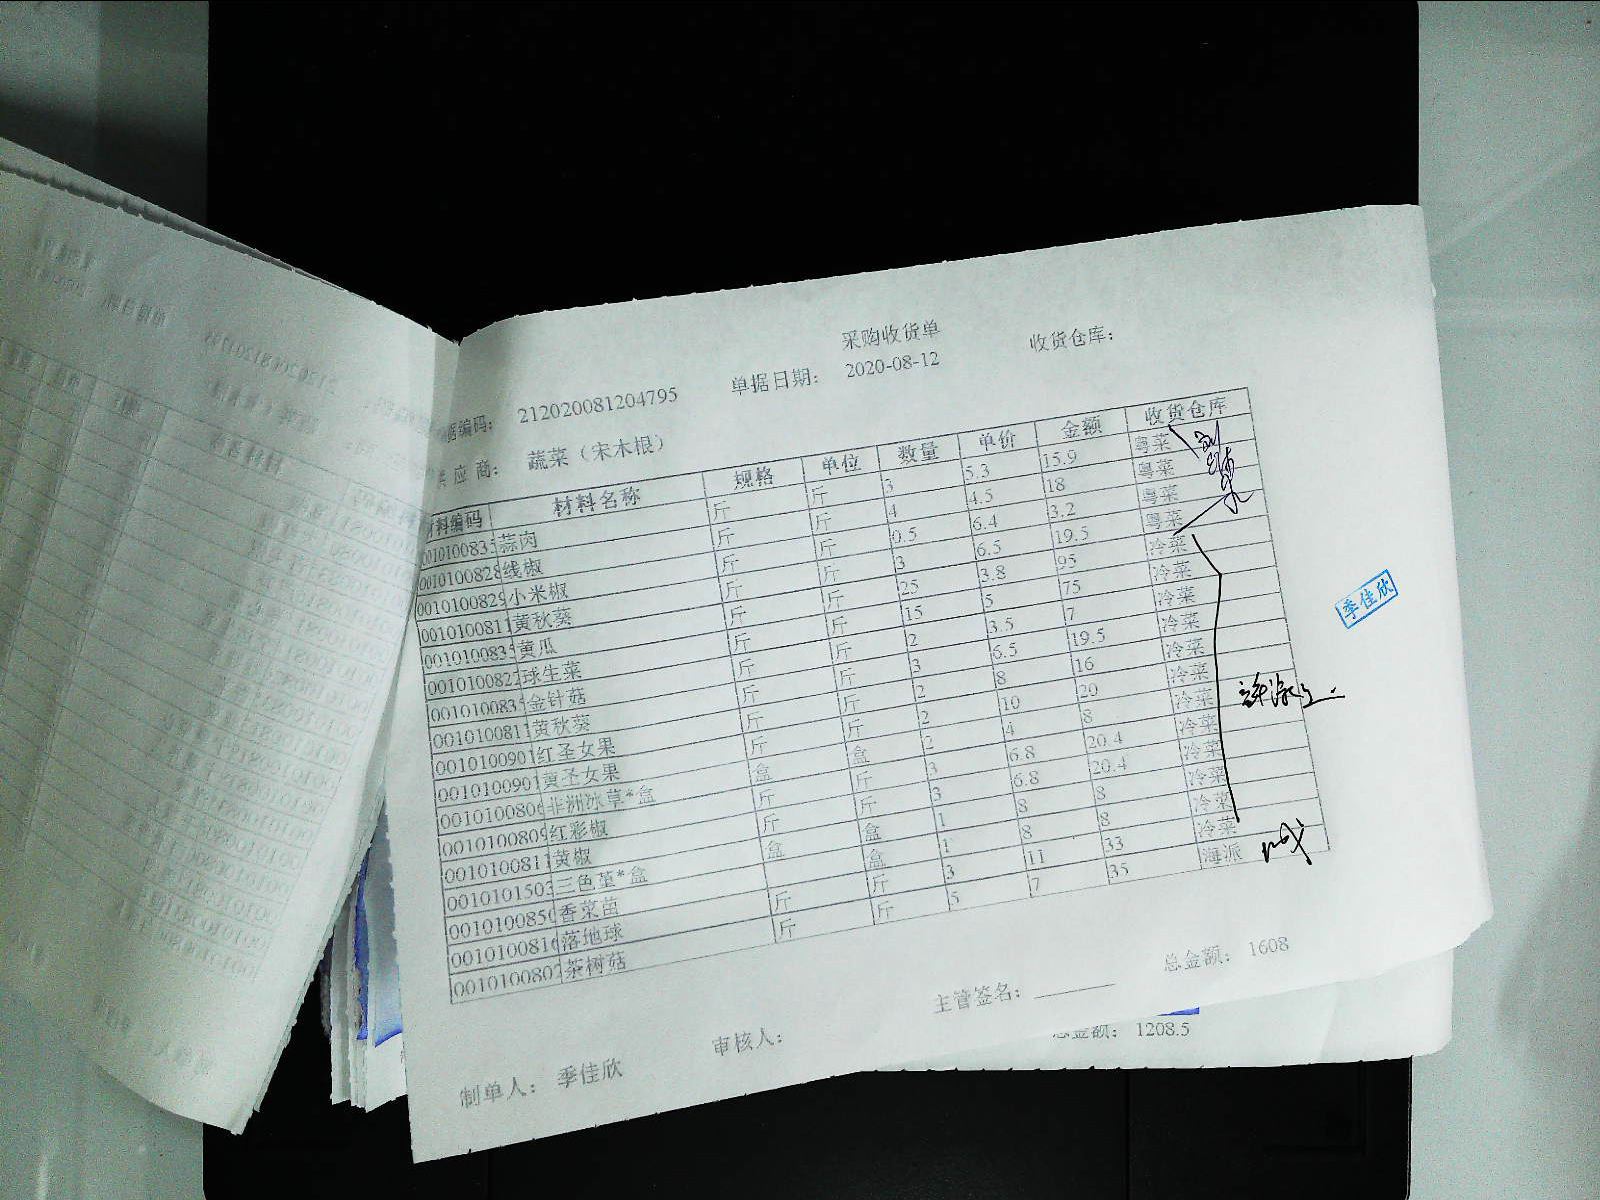 采购收货单
据编码: 212020081204795 单据日期: 2020-08-12 收货仓库:
供应商: 蔬菜（宋木根）
材料编码 材料名称 规格 单位 数量 单价 金额 收货仓库
0010100835 蒜肉 斤 斤 3 5.3 15.9 粤菜
0010100828 线椒 斤 斤 4 4.5 18 粤菜
0010100829 小米椒 斤 斤 0.5 6.4 3.2 粤菜
0010100811 黄秋葵 斤 斤 3 6.5 19.5 粤菜
0010100835 黄瓜 斤 斤 25 3.8 95 冷菜
0010100822 球生菜 斤 斤 15 5 75 冷菜
0010100835 金针菇 斤 斤 2 3.5 7 冷菜
0010100811 黄秋葵 斤 斤 3 6.5 19.5 冷菜
0010100901 红圣女果 斤 斤 2 8 16 冷菜
0010100901 黄圣女果 斤 斤 2 10 20 冷菜
0010100806 非洲冰草*盒 盒 盒 2 4 8 冷菜
0010100809 红彩椒 斤 斤 3 6.8 20.4 冷菜
0010100811 黄椒 斤 斤 3 6.8 20.4 冷菜
0010101503 三色堇*盒 盒 盒 1 8 8 冷菜
0010100850 香菜苗 盒 1 8 8 冷菜
0010100816 落地球 斤 斤 3 11 33 冷菜
0010100802 茶树菇 斤 斤 5 7 35 海派
季佳欣
总金额: 1608
制单人: 季佳欣 审核人: 主管签名:
总金额: 1208.5